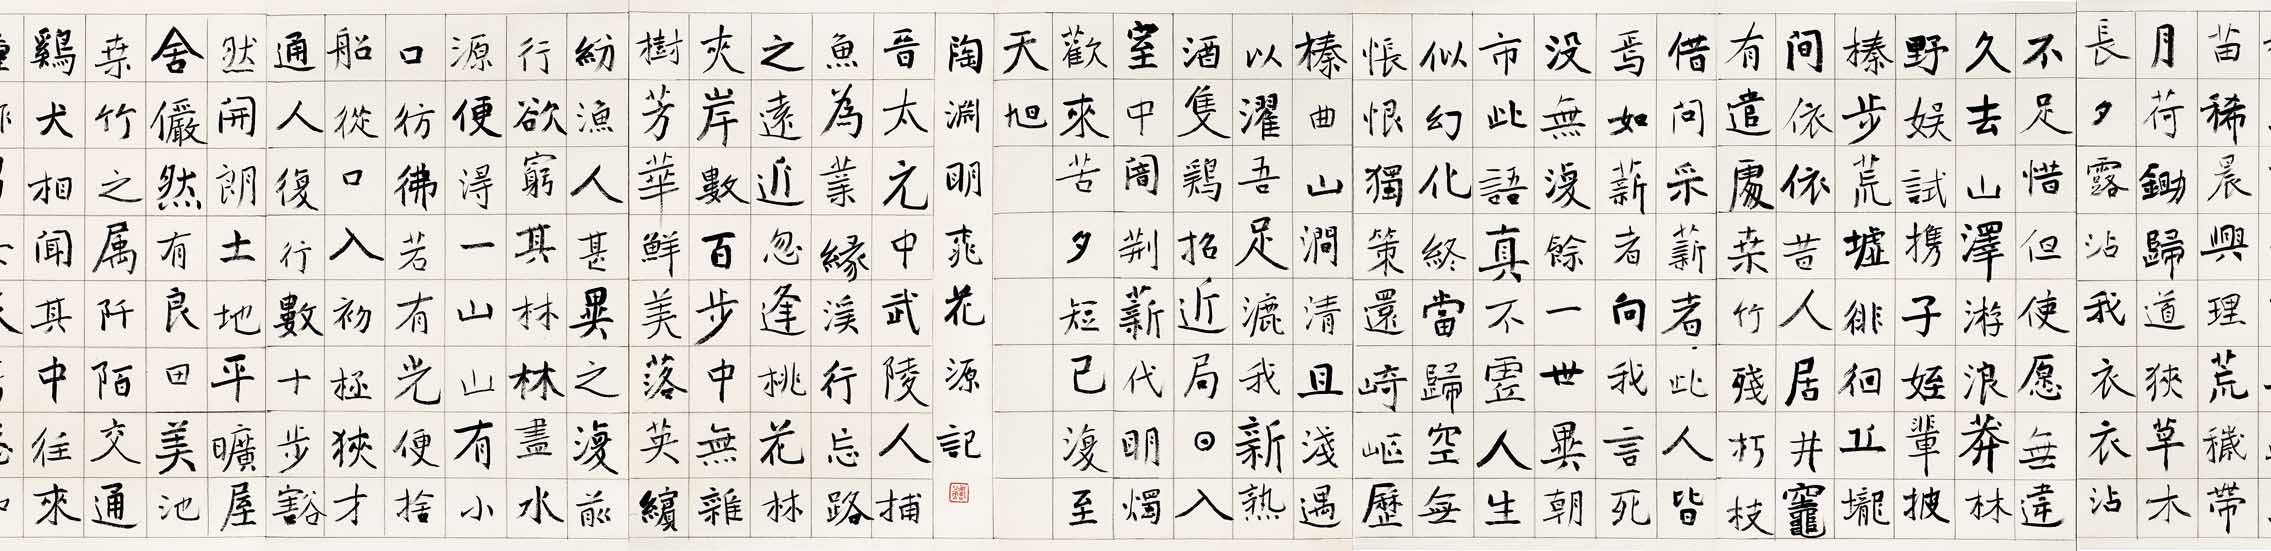 苗稀晨興理荒穢帶
月荷鋤歸道狹草木
長夕露沾我衣衣沾
不足惜但使愿無違
久去山澤游浪莽林
野娛試携子姪輩披
榛步荒墟徘徊丘壠
间依依昔人居井竈
有遺處桒竹殘朽枝
借问采薪者此人皆
焉如薪者向我言死
没無復餘一世異朝
市此語真不虛人生
似幻化終當歸空無
悵恨獨策還崎嶇歷
榛曲山澗清且淺遇
以濯吾足漉我新熟
酒隻鷄招近局日入
室中闇荆薪代明燭
歡來苦夕短已復至
天旭
陶淵明桃花源記
晉太元中武陵人捕
魚為業緣溪行忘路
之遠近忽逢桃花林
夾岸數百步中無雜
樹芳華鮮美落英繽
紛漁人甚異之復前
行欲窮其林林盡水
源便得一山山有小
口彷彿若有光便捨
船從口入初極狹才
通人復行數十步豁
然開朗土地平曠屋
舍儼然有良田美池
桒竹之属阡陌交通
鷄犬相聞其中往來